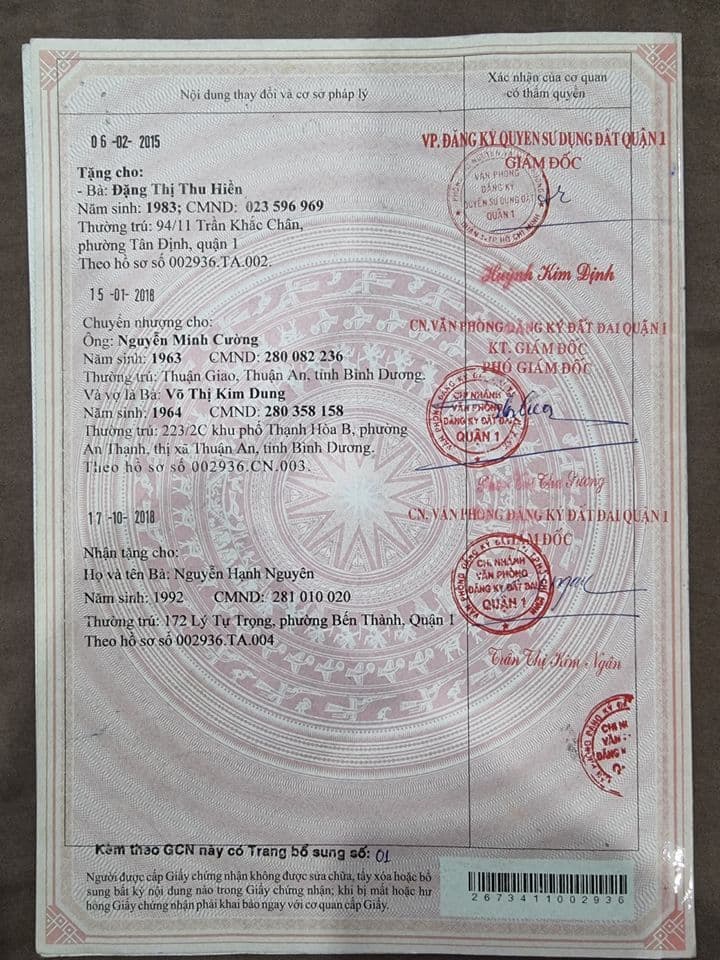 Nội dung thay đổi và cơ sở pháp lý
Xác nhận của cơ quan
có thẩm quyền
06-02-2015
Tặng cho:
- Bà: Đặng Thị Thu Hiền
Năm sinh: 1983; CMND: 023 596 969
Thường trú: 94/11 Trần Khắc Chân,
phường Tân Định, quận 1
Theo hồ sơ số 002936.TA.002.
VP. ĐĂNG KÝ QUYỀN SỬ DỤNG ĐẤT QUẬN 1
GIÁM ĐỐC
VĂN PHÒNG
ĐĂNG KÝ
QUYỀN SỬ DỤNG ĐẤT
QUẬN 1
Huỳnh Kim Định
15-01-2018
Chuyển nhượng cho:
Ông: Nguyễn Minh Cường
Năm sinh: 1963 CMND: 280 082 236
Thường trú: Thuận Giao, Thuận An, tỉnh Bình Dương.
Và vợ là Bà: Võ Thị Kim Dung
Năm sinh: 1964 CMND: 280 358 158
Thường trú: 223/2C khu phố Thạnh Hòa B, phường
An Thạnh, thị xã Thuận An, tỉnh Bình Dương.
Theo hồ sơ số 002936.CN.003.
CN. VĂN PHÒNG ĐĂNG KÝ ĐẤT ĐAI QUẬN 1
KT. GIÁM ĐỐC
PHÓ GIÁM ĐỐC
CHI NHÁNH
VĂN PHÒNG
ĐĂNG KÝ ĐẤT ĐAI
QUẬN 1
17-10-2018
Nhận tặng cho:
Họ và tên Bà: Nguyễn Hạnh Nguyên
Năm sinh: 1992 CMND: 281 010 020
Thường trú: 172 Lý Tự Trọng, phường Bến Thành, Quận 1
Theo hồ sơ số 002936.TA.004
CN. VĂN PHÒNG ĐĂNG KÝ ĐẤT ĐAI QUẬN 1
GIÁM ĐỐC
CHI NHÁNH
VĂN PHÒNG
ĐĂNG KÝ ĐẤT ĐAI
QUẬN 1
Trần Thị Kim Ngân
Kèm theo GCN này có Trang bổ sung số: 01
Người được cấp Giấy chứng nhận không được sửa chữa, tẩy xóa hoặc bổ
sung bất kỳ nội dung nào trong Giấy chứng nhận; khi bị mất hoặc hư
hỏng Giấy chứng nhận phải khai báo ngay với cơ quan cấp Giấy.
2673411002936